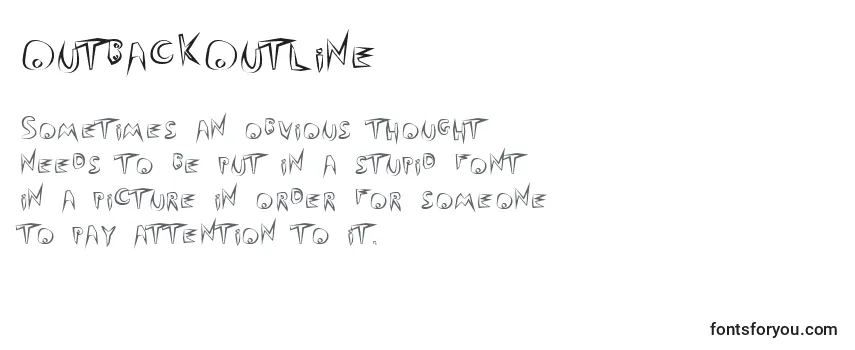 OutbackOutline
Sometimes an obvious thought
needs to be put in a stupid font
in a picture in order for someone
to pay attention to it.
fontsforyou.com